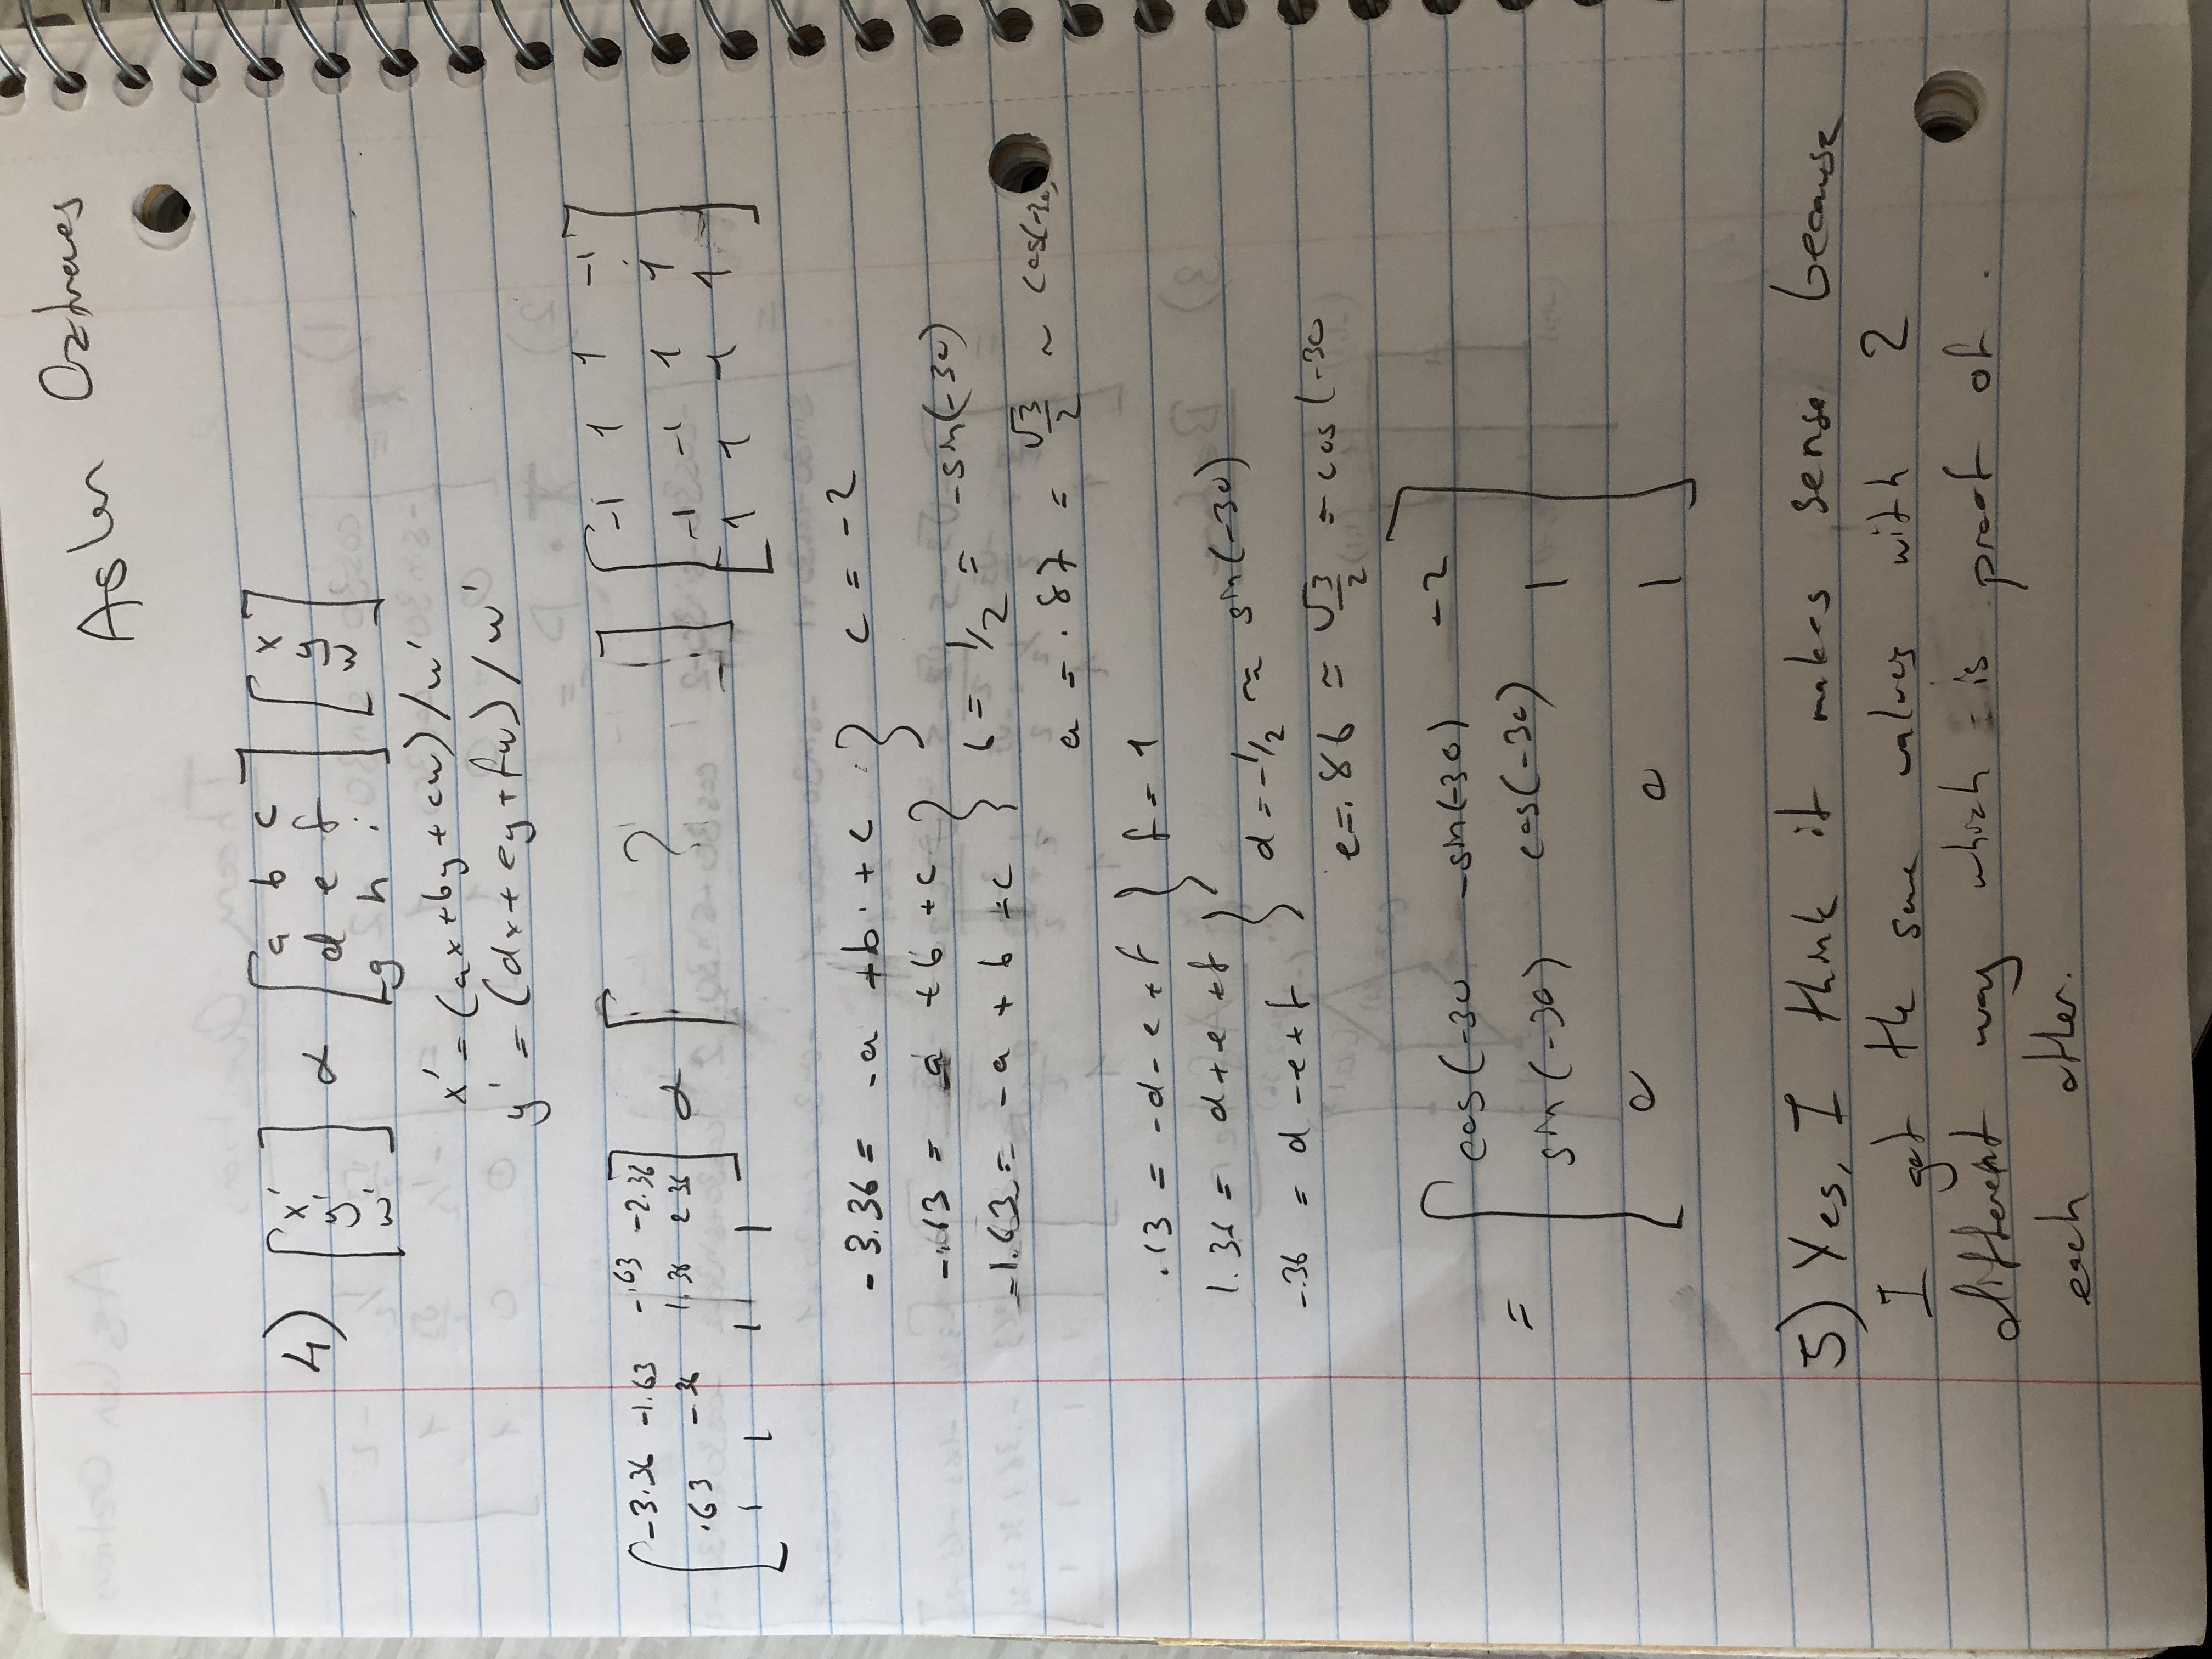 4) [x' y' w'] ∝ [a b c; d e f; g h i] [x y w]
x' = (ax+by+cw)/w'
y' = (dx+ey+fw)/w'
[-3.36 -1.63 -.63 -2.36; .63 -.36 1.36 2.36; 1 1 1 1] ∝ [ ? ] [-1 1 1 -1; -1 -1 1 1; 1 1 1 1]
-3.36 = -a +b +c } c = -2
-.63 = a +b +c
-1.63 = -a + b +c } b = 1/2 = -sin(-30)
a = .87 = √3/2 ~ cos(-30
.63 = -d-e+f } f = 1
1.36 = d+e+f
-.36 = d-e+f } d = -1/2 ≈ sin(-30)
e=.86 = √3/2 = cos(-30
= [cos(-30 -sin(-30) -2; sin(-30) cos(-30) 1; 0 0 1]
5) Yes, I think it makes sense because
I get the same values with 2
different way which is proof of
each other.